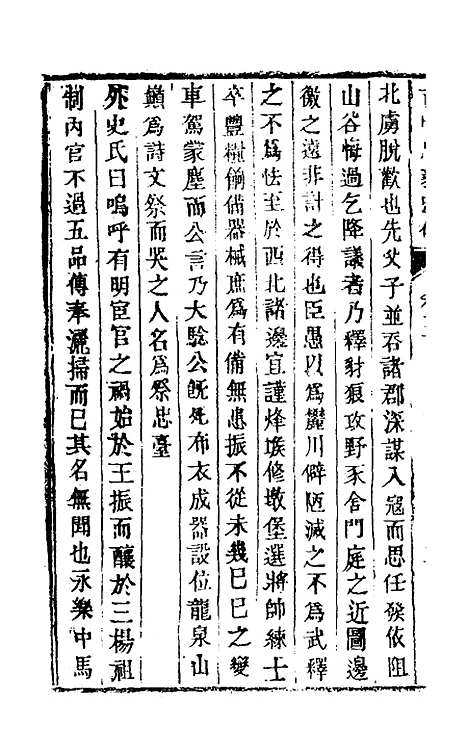 北虜脫歡也先父子並吞諸郡深謀入寇而思任發依阻
山谷悔過乞降議者乃釋豺狼攻野豕舍門庭之近圖邊
徼之遠非計之得也臣愚以爲麓川僻陋滅之不爲武釋
之不爲怯至於西北諸邊宜謹烽堠修墩堡選將帥練士
卒豐糗餉備器械庶爲有備無患振不從未幾巳巳之變
車駕蒙塵而公言乃大驗公旣死布衣成器設位龍泉山
巔爲詩文祭而哭之人名爲祭忠臺
外史氏曰嗚呼有明宦官之禍始於王振而釀於三楊祖
制內官不過五品傳奉灑掃而已其名無聞也永樂中馬